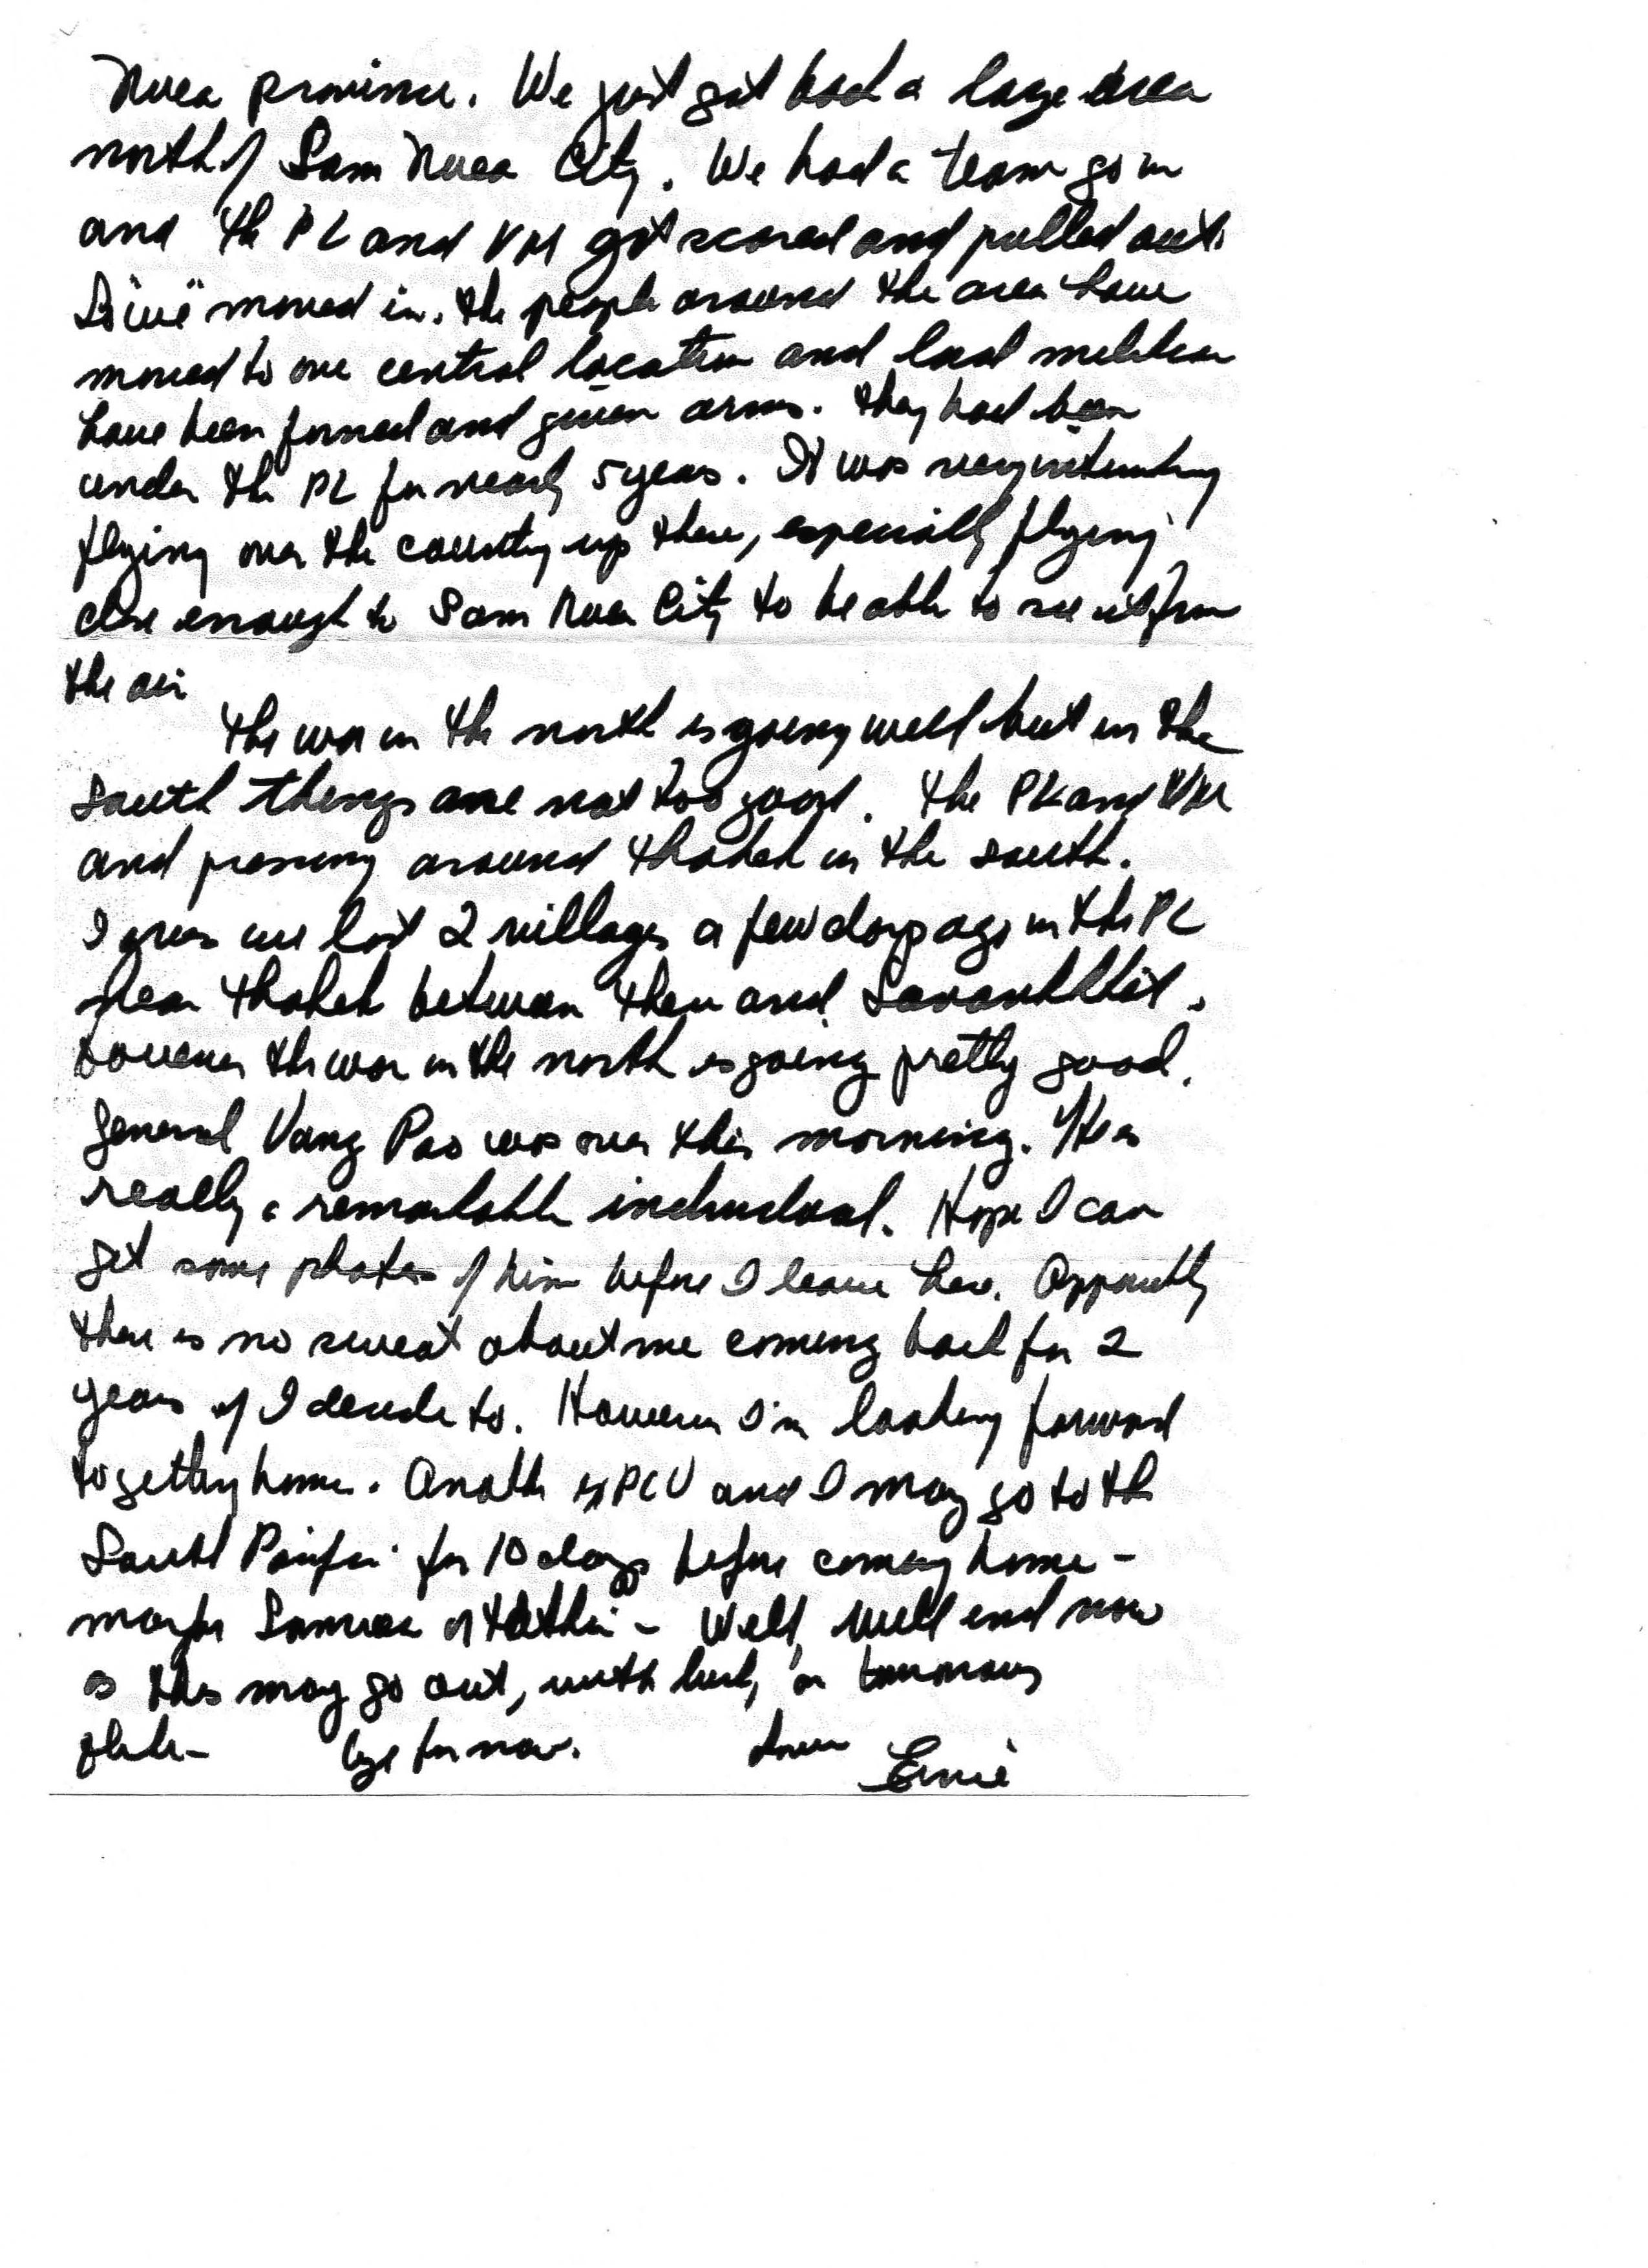 Nuea province. We just got back a large area
north of Sam Nuea City. We had a team go in
and the PL and VM got scared and pulled out.
So "we" moved in. The people around the area have
moved to one central location and local militia
have been formed and given arms. They had been
under the PL for nearly 5 years. It was very interesting
flying over the country up there, especially flying
close enough to Sam Nuea City to be able to see it from
the air
The war in the north is going well but in the
south things are not too good. The PL and VM
and pressing around Thakek in the south.
I guess we lost 2 villages a few days ago to the PL
near Thakek between there and Savanakhet.
However the war in the north is going pretty good.
General Vang Pao was over this morning. He is
really a remarkable individual. Hope I can
get some photos of him before I leave here. Apparently
there is no sweat about me coming back for 2
years if I decide to. However I'm looking forward
to getting home. Another xPCV and I may go to the
South Pacific for 10 days before coming home -
maybe Samoa or Tahiti - Well, will end now
as this may go out, with luck, on tomorrows
plane - bye for now. Love
Ernie